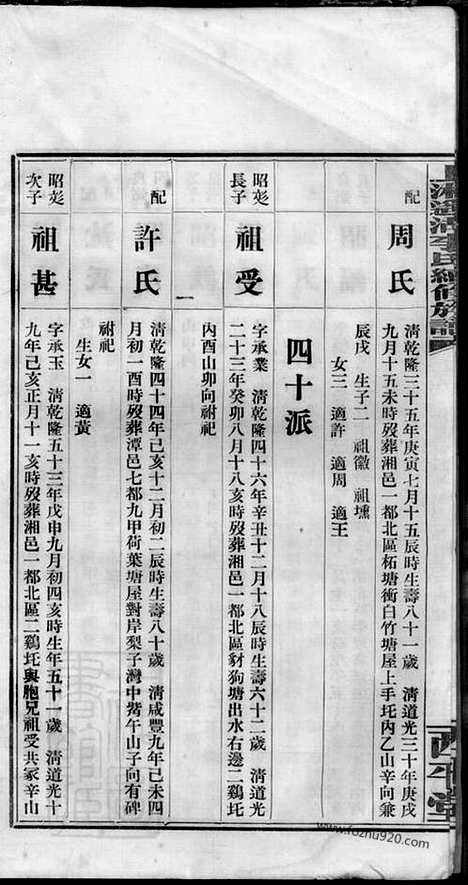 配
周氏
清乾隆三十五年庚寅七月十五辰時生壽八十一歲 清道光三十年庚戌
九月十五未時歿葬湘邑一都北區柘塘衝白竹塘屋上手坵內乙山辛向兼
辰戌 生子二 祖徽 祖壎
女三 適許 適周 適王
四十派
昭夌
長子
祖受
字承業 清乾隆四十六年辛丑十二月十八辰時生壽六十二歲 清道光
二十三年癸卯八月十八亥時歿葬湘邑一都北區豺狗塘出水右邊二鷄坵
內酉山卯向祔祀
配
許氏
清乾隆四十四年己亥十二月初二辰時生壽八十歲 清咸豐九年己未四
月初一酉時歿葬潭邑七都九甲荷葉塘屋對岸梨子灣中觜午山子向有碑
祔祀
生女一 適黃
昭夌
次子
祖甚
字承玉 清乾隆五十三年戊申九月初四亥時生年五十一歲 清道光十
九年己亥正月十一亥時歿葬湘邑一都北區二鷄坵與胞兄祖受共冢辛山
www.fozhu920.com